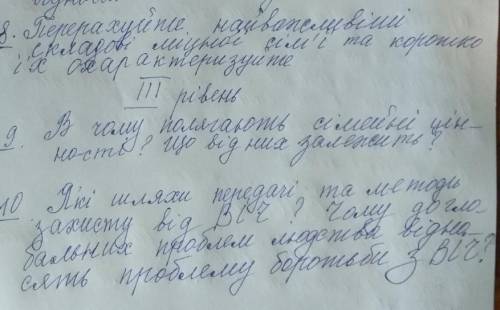 8. Перерахуйте найважливіші
складові міцної сім'ї та коротко
їх охарактеризуйте
III рівень
9. В чому полягають сімейні цін-
ності? Що від них залежить?
10 Які шляхи передачі та методи
захисту від ВІЧ? Чому до гло-
бальних проблем людства відно-
сять проблему боротьби з ВІЧ?